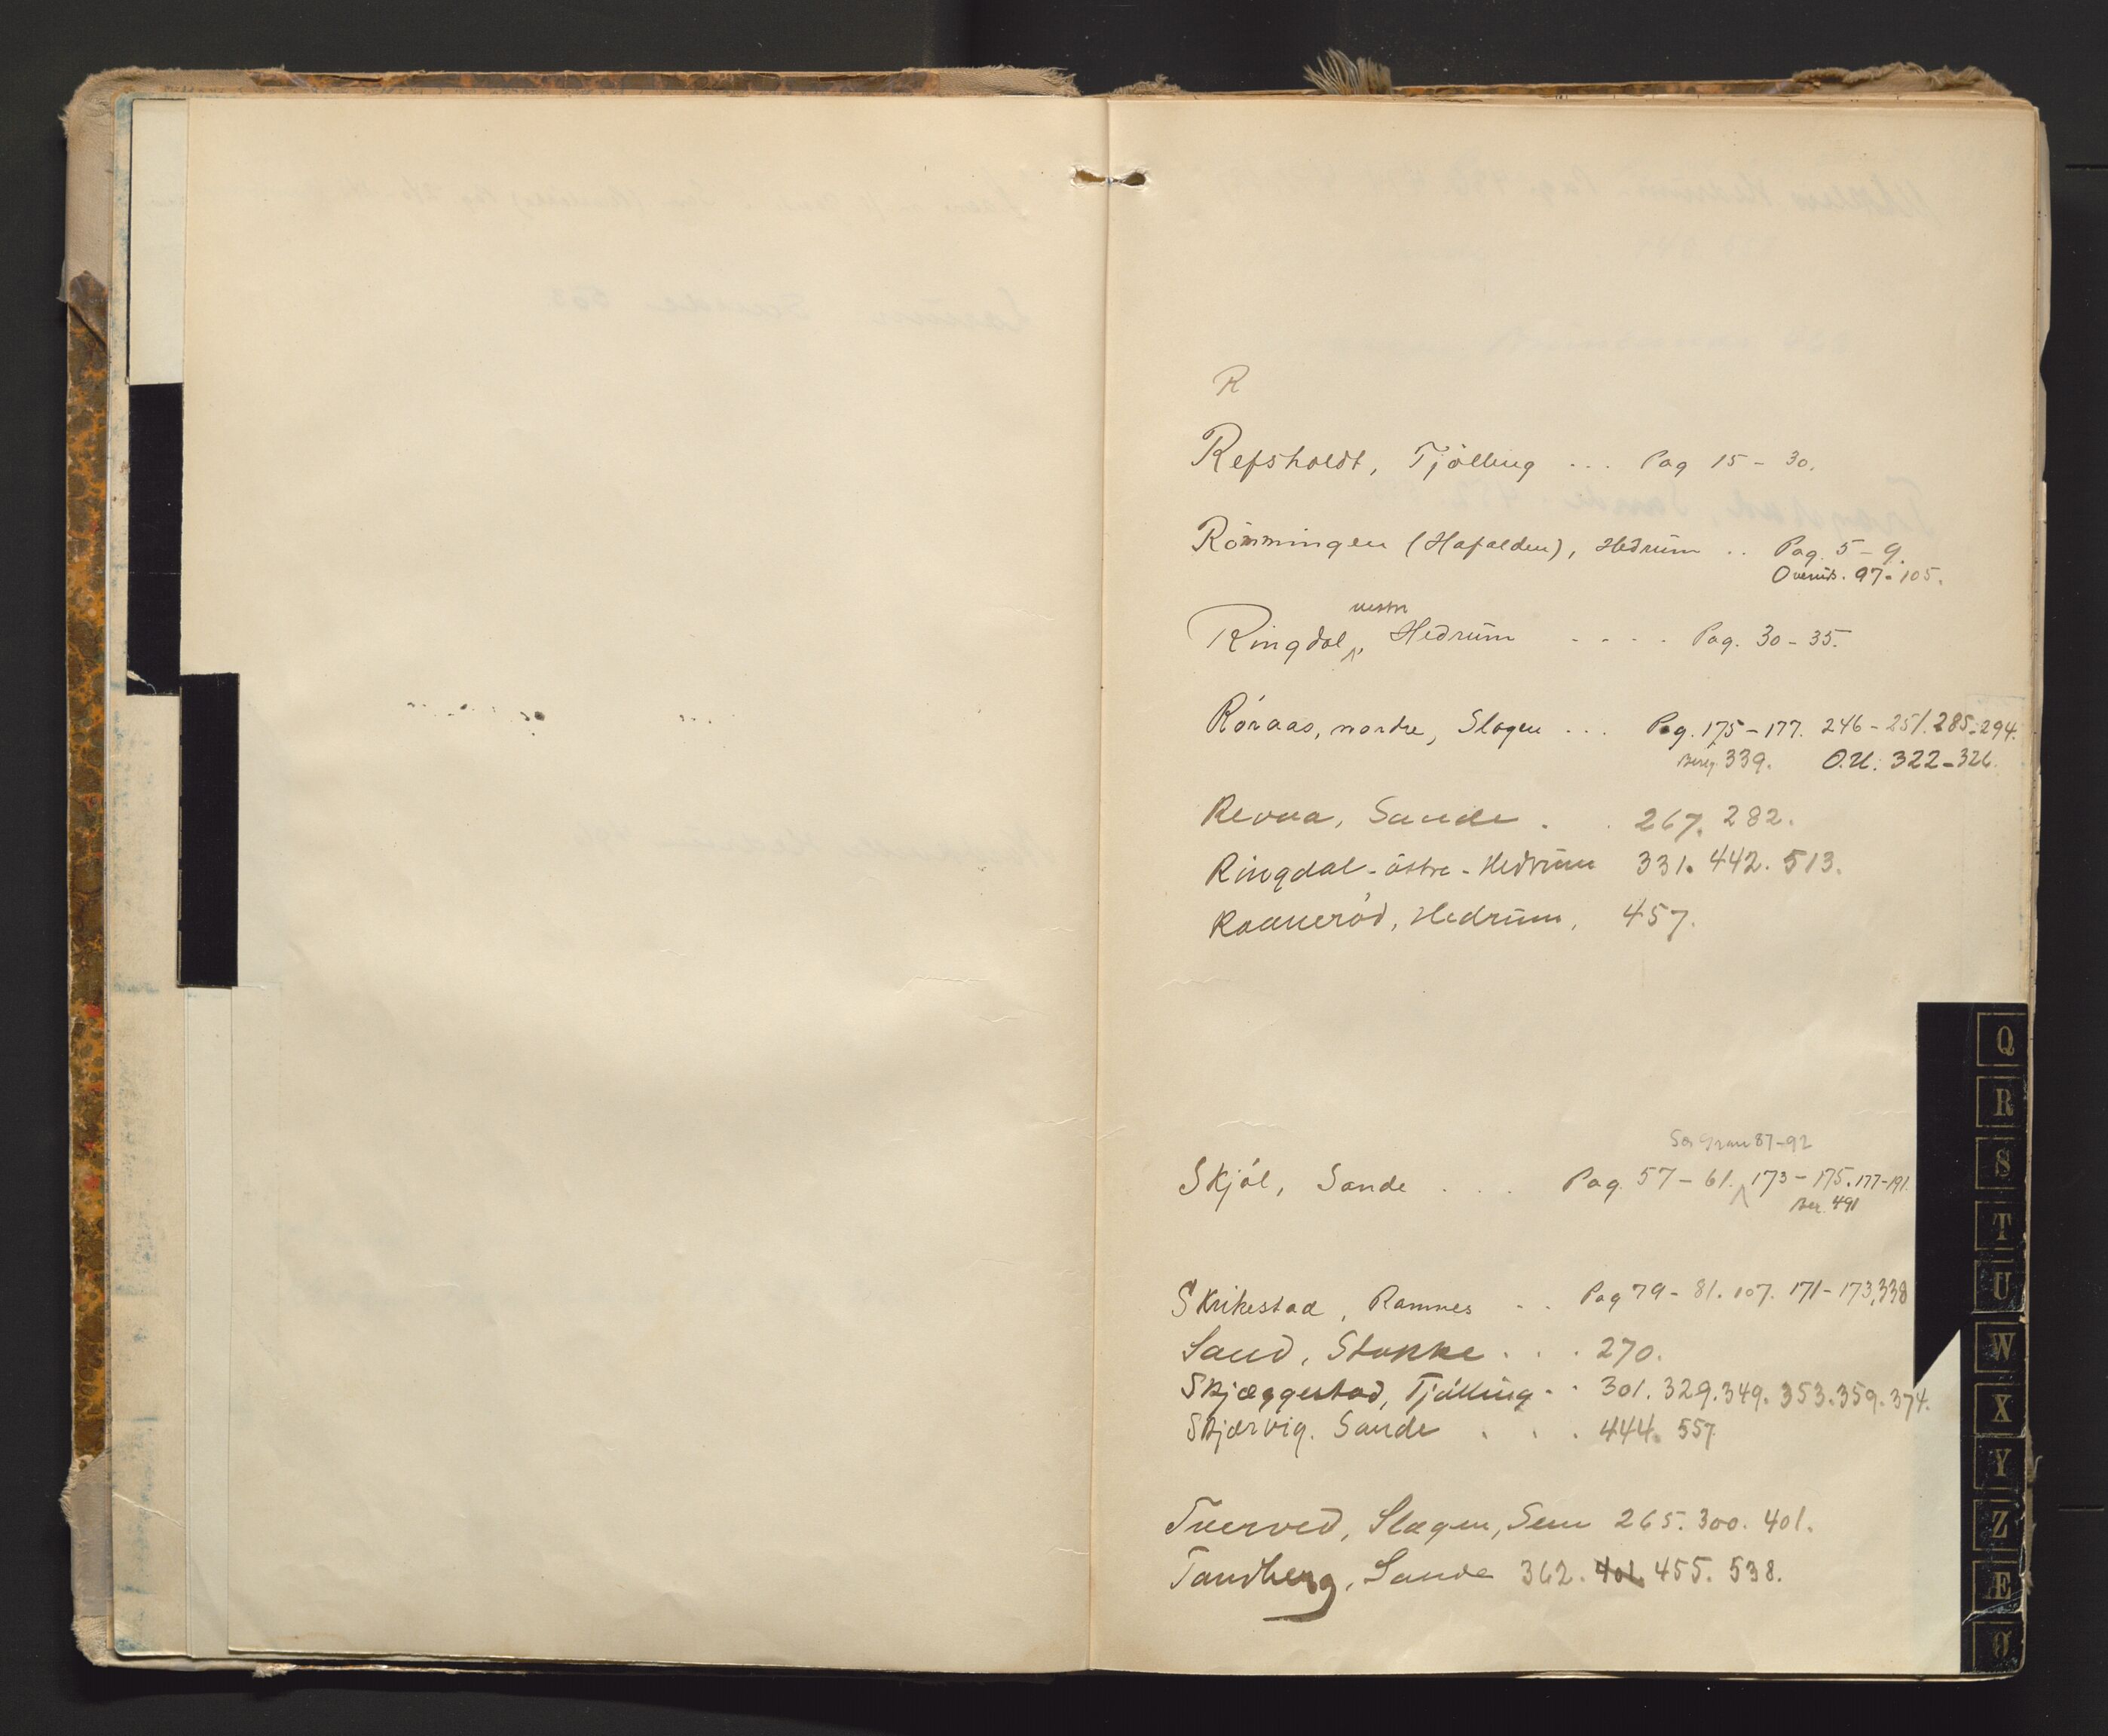 R
Refsholdt, Tjølling ... Pag 15 - 30.
Rönningen (Hafalden), Hedrum .. Pag. 5 - 9.
Overuds. 97 - 105.
vestre
Ringdal, Hedrum - - - - Pag. 30 - 35.
Róraas, nordre, Slagen ... Pag. 175 - 177. 246 - 251. 285 - 294.
339. O.U. 322 - 326.
Revaa, Sande . . 267. 282.
Ringdal - östre - Hedrum 331. 442. 513.
Raaneród, Hedrum, 457.
87 - 92
Skjól, Sande . . . Pag. 57 - 61. 173 - 175. 177 - 191.
Ber. 491
Skrikestad, Ramnes - . Pag 79 - 81. 107. 171 - 173, 338
Sand, Stokke . . . 270.
Skjæggestad, Tjólling - . 301. 329. 349. 353. 359. 374.
Skjærvig. Sande . . . 444. 557.
Tverved, Slagen, Sem 265. 300. 401.
Tandberg, Sande 362. 401 455. 538.
Q
R
S
T
U
W
X
Y
Z
Æ
Ø